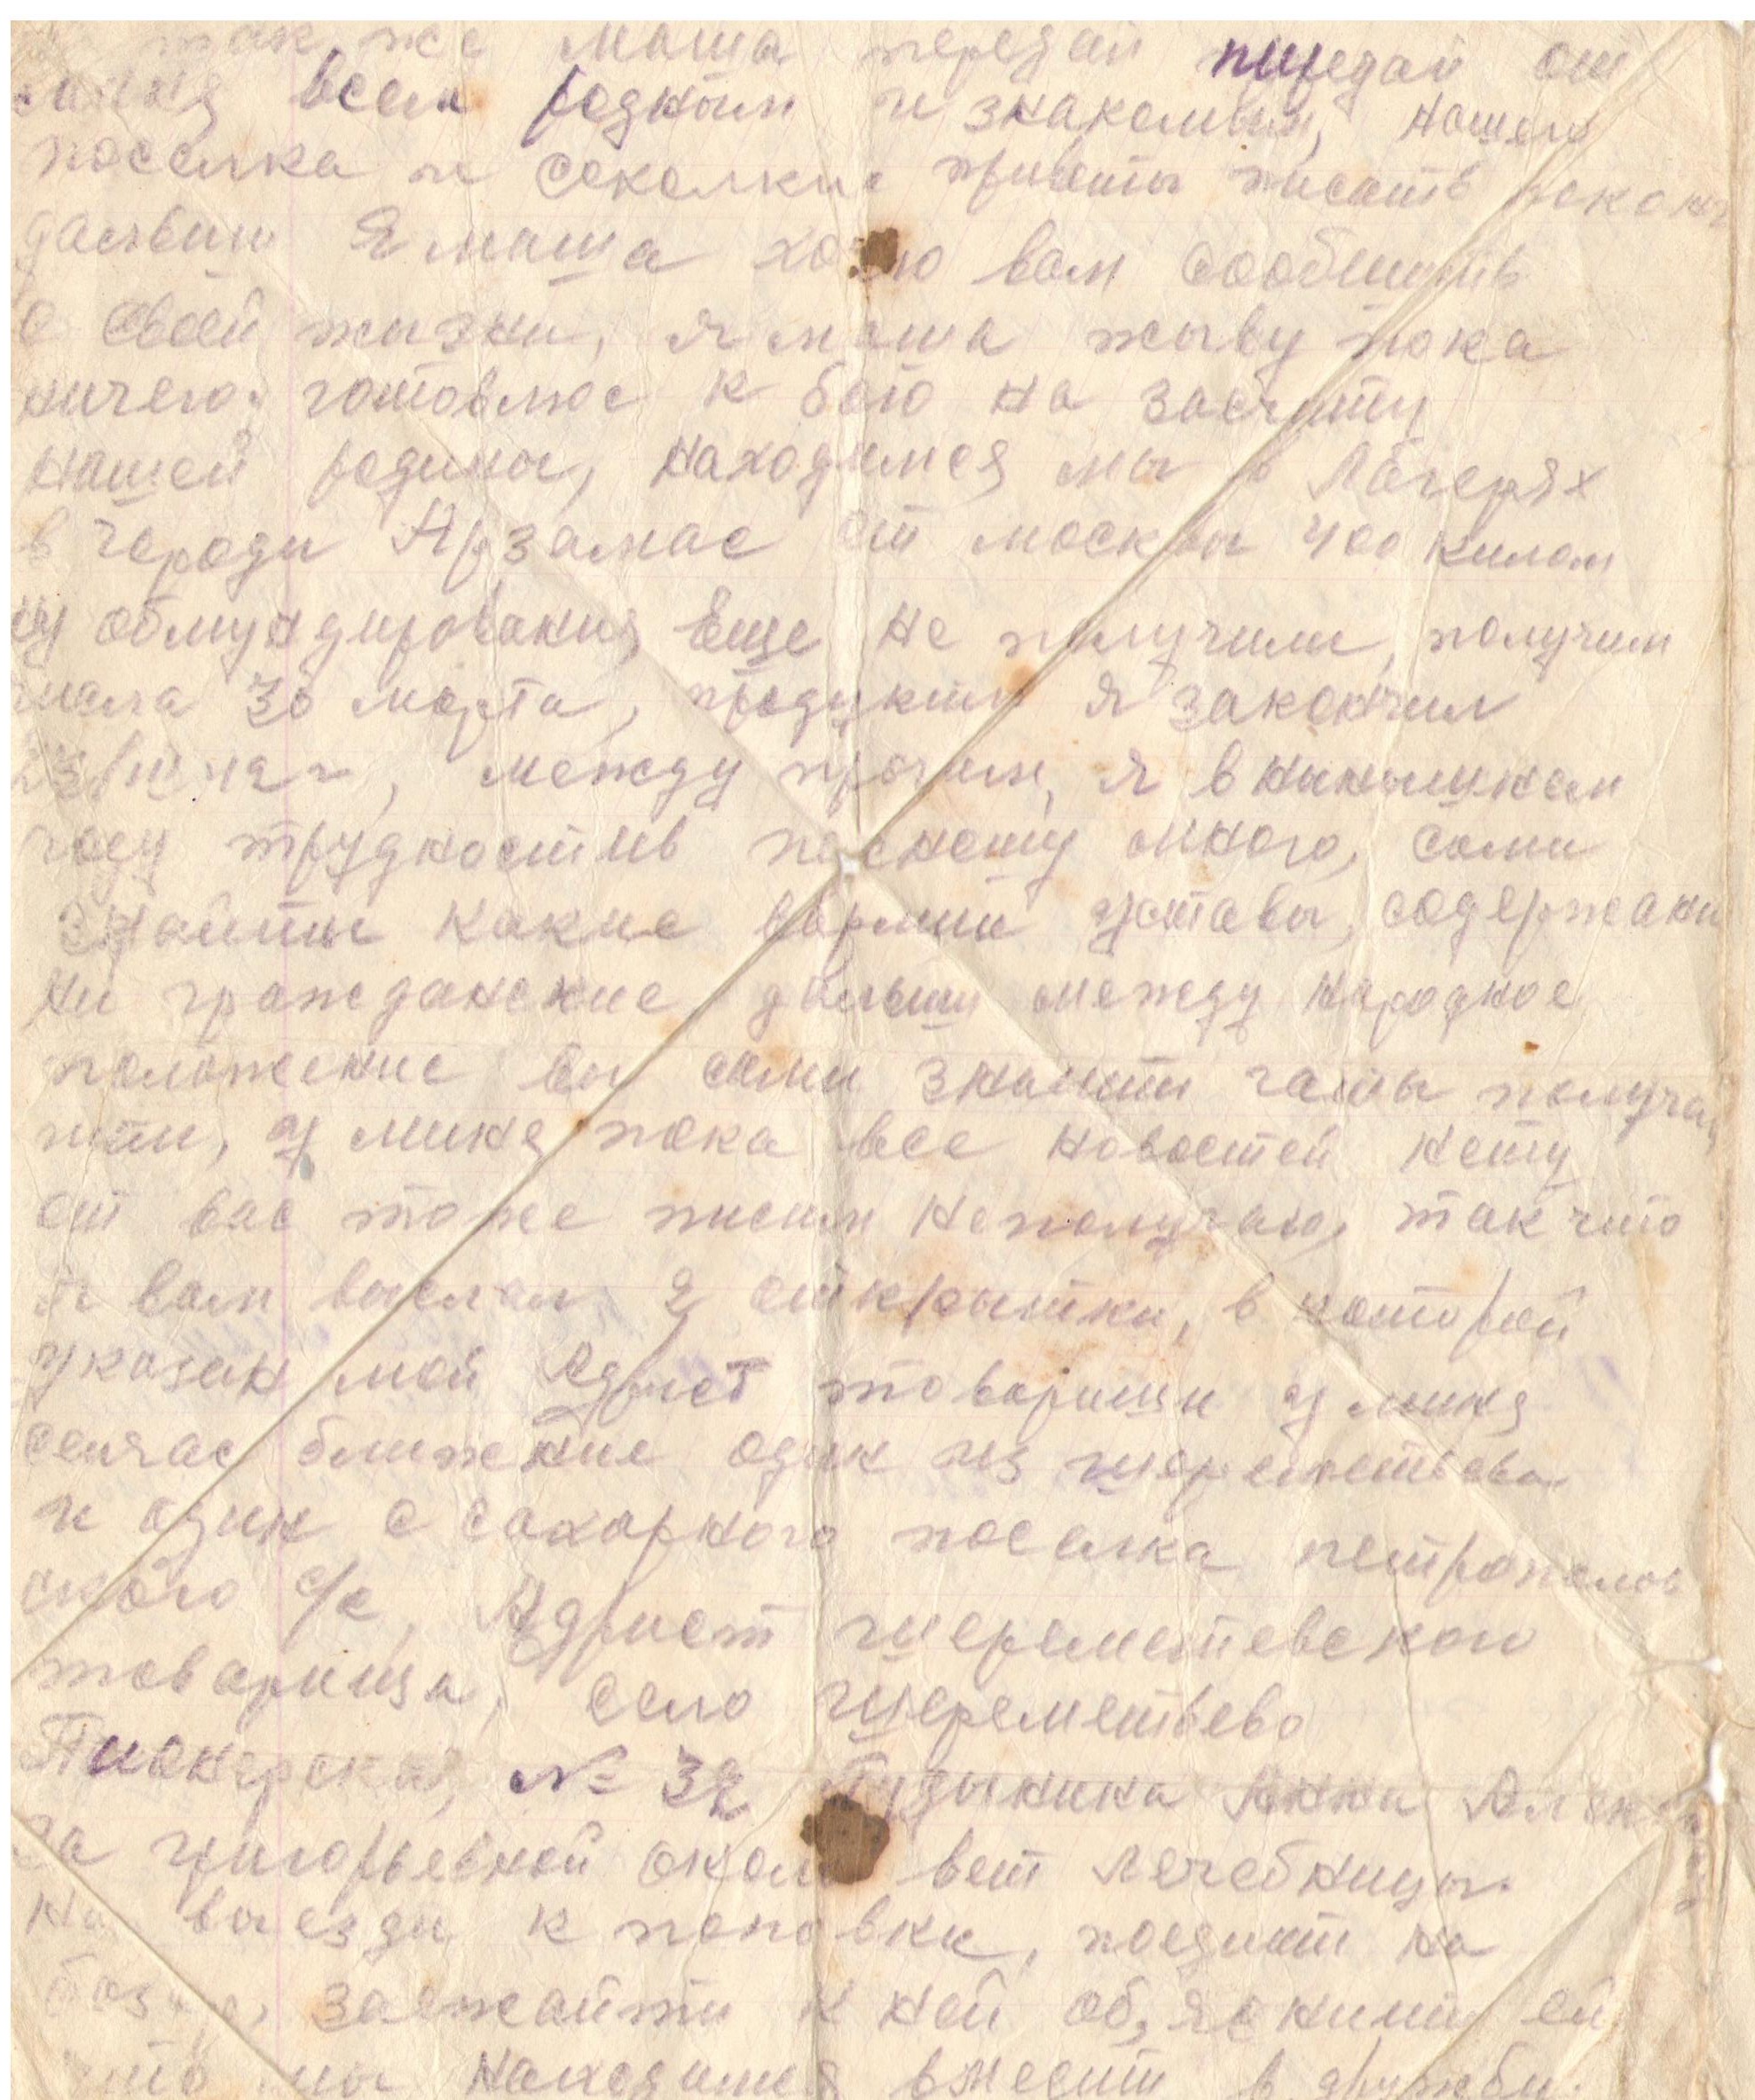 так же маша передай передай от
миня всем родным и знакомым, нашего
поселка и соколкие приветы писать
дальвши Я маша хочю вам сообщить
о своей жизни, я маша жыву пока
ничего, готовлюс к бою на засчиту
нашей родины, находимся мы в Лагерях
в городи Арзамас от москвы 400 килом
обмундирования еще не получили, получим
30 марта, продукты я закончил
между прочим, я в нынышнем
году трудностив пережу много, сами
знаити какие уставы, содержани
ни гражданские дальши между народное
положение вы сами знаити газеты получа
ити, у миня пока все новостей нету
от вас тоже писим неполучаю, так что
я вам выслал 2 открытки, в которой
указан мой Адрест товарищи у миня
сейчас ближние один из шереметьева
и один с сахарного поселка петропалов
ского с/с, Адрест шереметевского
товарища, село шереметьево
Пионерская, № 32 Анна Алек
григорьевной около вет лечебницы.
на выезди к поповки, поедити на
базар, заежайти к ней об,ясними ей
что мы находимся вместе в дружби